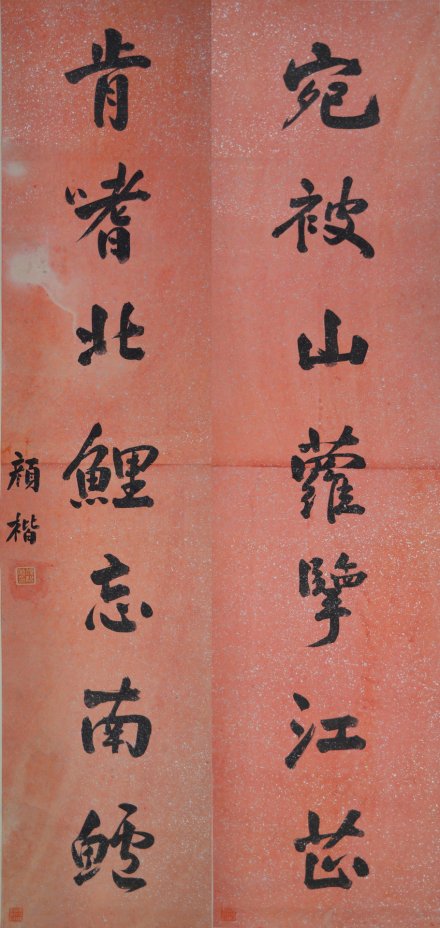 宛被山蘿擥江茝
肯嗜北鯉忘南鱸
顏楷